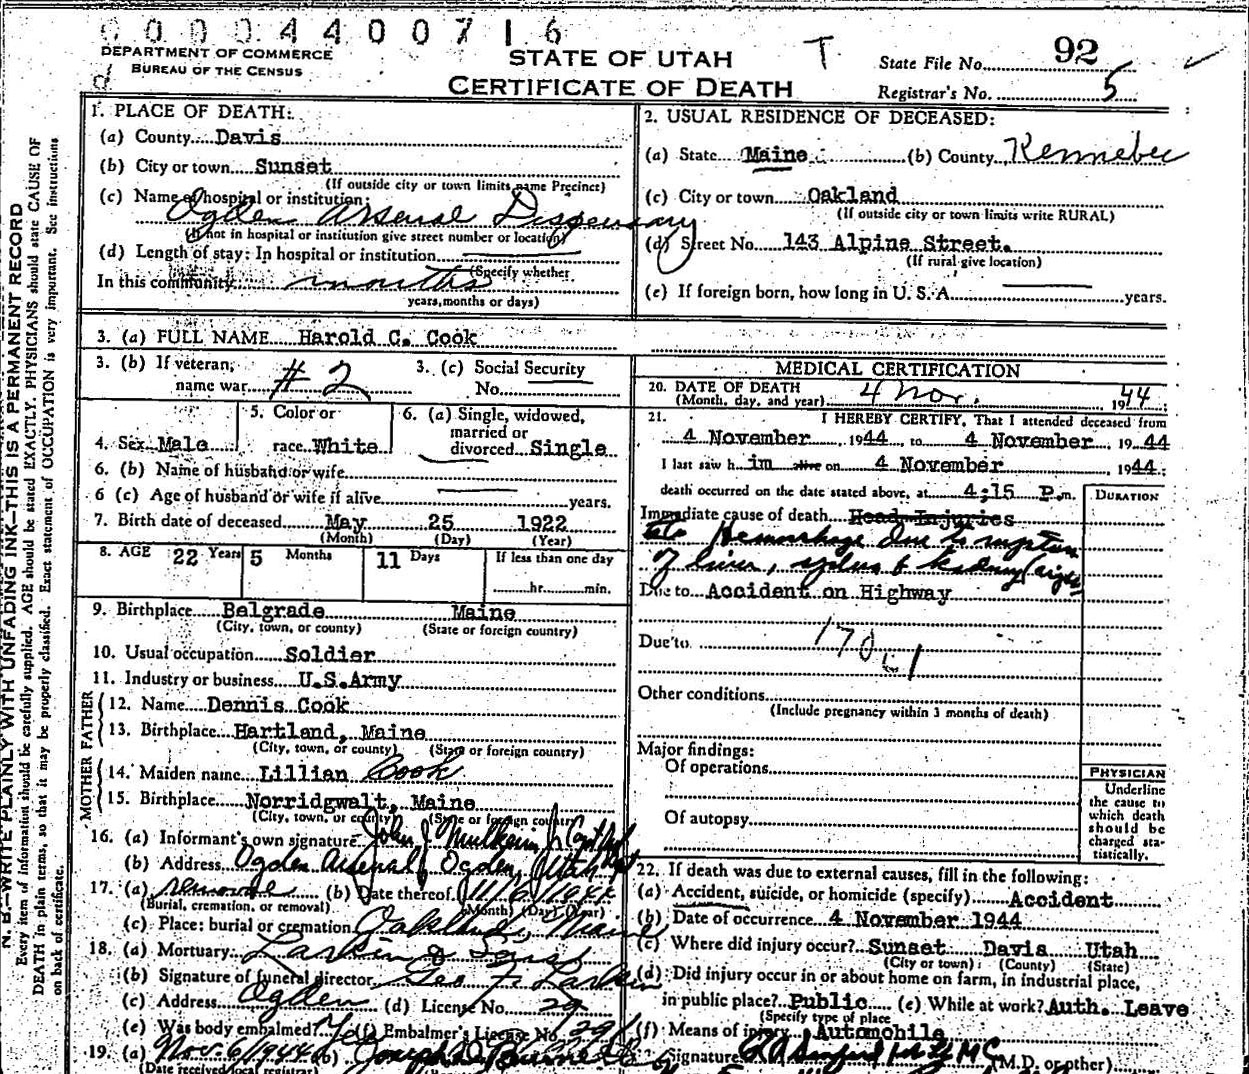 0 0 0 0 4 4 0 0 7 1 6
DEPARTMENT OF COMMERCE
BUREAU OF THE CENSUS
d
STATE OF UTAH
CERTIFICATE OF DEATH
T
State File No. 92
Registrar's No. 5
N. B.—WRITE PLAINLY WITH UNFADING INK—THIS IS A PERMANENT RECORD
Every item of information should be carefully supplied. AGE should be stated EXACTLY. PHYSICIANS should state CAUSE OF
DEATH in plain terms, so that it may be properly classified. Exact statement of OCCUPATION is very important. See instructions
on back of certificate.
1. PLACE OF DEATH:
(a) County Davis
(b) City or town Sunset
(If outside city or town limits name Precinct)
(c) Name of hospital or institution:
Ogden Arsenal Dispensary
(If not in hospital or institution give street number or location)
(d) Length of stay: In hospital or institution
(Specify whether
In this community months
years, months or days)
2. USUAL RESIDENCE OF DECEASED:
(a) State Maine (b) County Kennebec
(c) City or town Oakland
(If outside city or town limits write RURAL)
(d) Street No. 143 Alpine Street.
(If rural give location)
(e) If foreign born, how long in U. S. A. years.
3. (a) FULL NAME Harold C. Cook
3. (b) If veteran, name war # 2
3. (c) Social Security No.
4. Sex Male
5. Color or race White
6. (a) Single, widowed, married or divorced Single
6. (b) Name of husband or wife
6 (c) Age of husband or wife if alive years.
7. Birth date of deceased May 25 1922
(Month) (Day) (Year)
8. AGE 22 Years 5 Months 11 Days If less than one day
hr. min.
9. Birthplace Belgrade Maine
(City, town, or county) (State or foreign country)
10. Usual occupation Soldier
11. Industry or business U.S.Army
FATHER
12. Name Dennis Cook
13. Birthplace Hartland, Maine
(City, town, or county) (State or foreign country)
MOTHER
14. Maiden name Lillian Cook
15. Birthplace Norridgwalt, Maine
(City, town, or county) (State or foreign country)
16. (a) Informant's own signature John J.
(b) Address Ogden Arsenal Ogden, Utah
17. (a) removal (b) Date thereof 11/6/1944
(Burial, cremation, or removal) (Month) (Day) (Year)
(c) Place: burial or cremation Oakland, Maine
18. (a) Mortuary Larkin & Sons
(b) Signature of funeral director Geo F. Larkin
(c) Address Ogden (d) License No. 29
(e) Was body embalmed? Yes (f) Embalmer's License No. 291
19. (a) Nov. 6/1944 (b) Joseph
(Date received local registrar)
MEDICAL CERTIFICATION
20. DATE OF DEATH
(Month, day, and year) 4 Nov. 1944
21. I HEREBY CERTIFY, That I attended deceased from
4 November, 1944, to 4 November, 1944
I last saw him alive on 4 November, 1944;
death occurred on the date stated above, at 4;15 P.m.
DURATION
Immediate cause of death Head Injuries
Hemorrhage due to rupture
of liver, spleen & kidney (right)
Due to Accident on Highway
Due to 170c1
Other conditions
(Include pregnancy within 3 months of death)
Major findings:
Of operations
Of autopsy
PHYSICIAN
Underline
the cause to
which death
should be
charged sta-
tistically.
22. If death was due to external causes, fill in the following:
(a) Accident, suicide, or homicide (specify) Accident
(b) Date of occurrence 4 November 1944
(c) Where did injury occur? Sunset Davis Utah
(City or town) (County) (State)
(d) Did injury occur in or about home on farm, in industrial place,
in public place? Public (e) While at work? Auth. Leave
(Specify type of place
(f) Means of injury Automobile
Signature (M.D. or other)